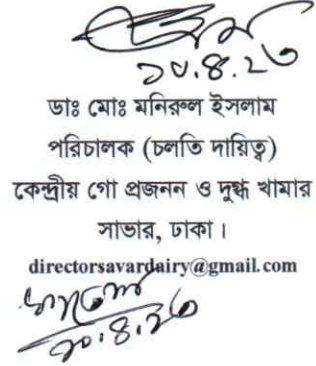 ২০.৪.২৩
ডাঃ মোঃ মনিরুল ইসলাম
পরিচালক (চলতি দায়িত্ব)
কেন্দ্রীয় গো প্রজনন ও দুগ্ধ খামার
সাভার, ঢাকা।
directorsavardairy@gmail.com
২০.৪.২৩